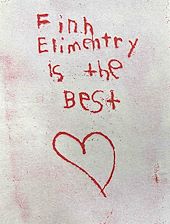 Finn
Elimentry
is the
BEST